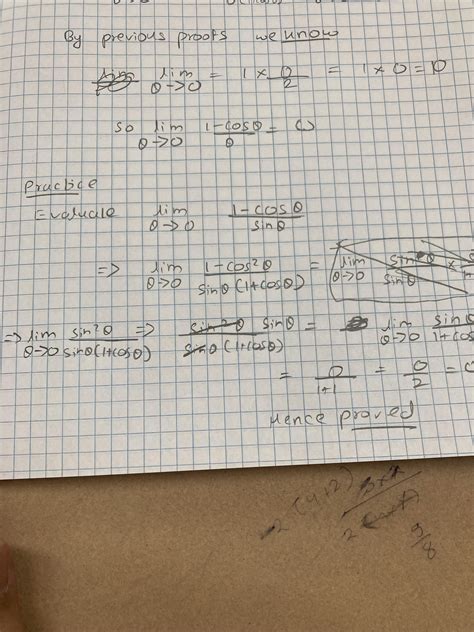 By previous proofs we know
lim θ→0 = 1 × 0/2 = 1 × 0 = 0
so lim θ→0 1-cosθ/θ = 0
Practice
Evaluate lim θ→0 1-cosθ/sinθ
=> lim θ→0 1-cos²θ/sinθ(1+cosθ) = lim θ→0 sinθ/sinθ ×
=> lim θ→0 sin²θ/sinθ(1+cosθ) => sin²θ sinθ/sinθ(1+cosθ) = lim θ→0 sinθ/1+cos
= 0/1+1 = 0/2 = 0
Hence proved
2 (4+2)
2
5/8